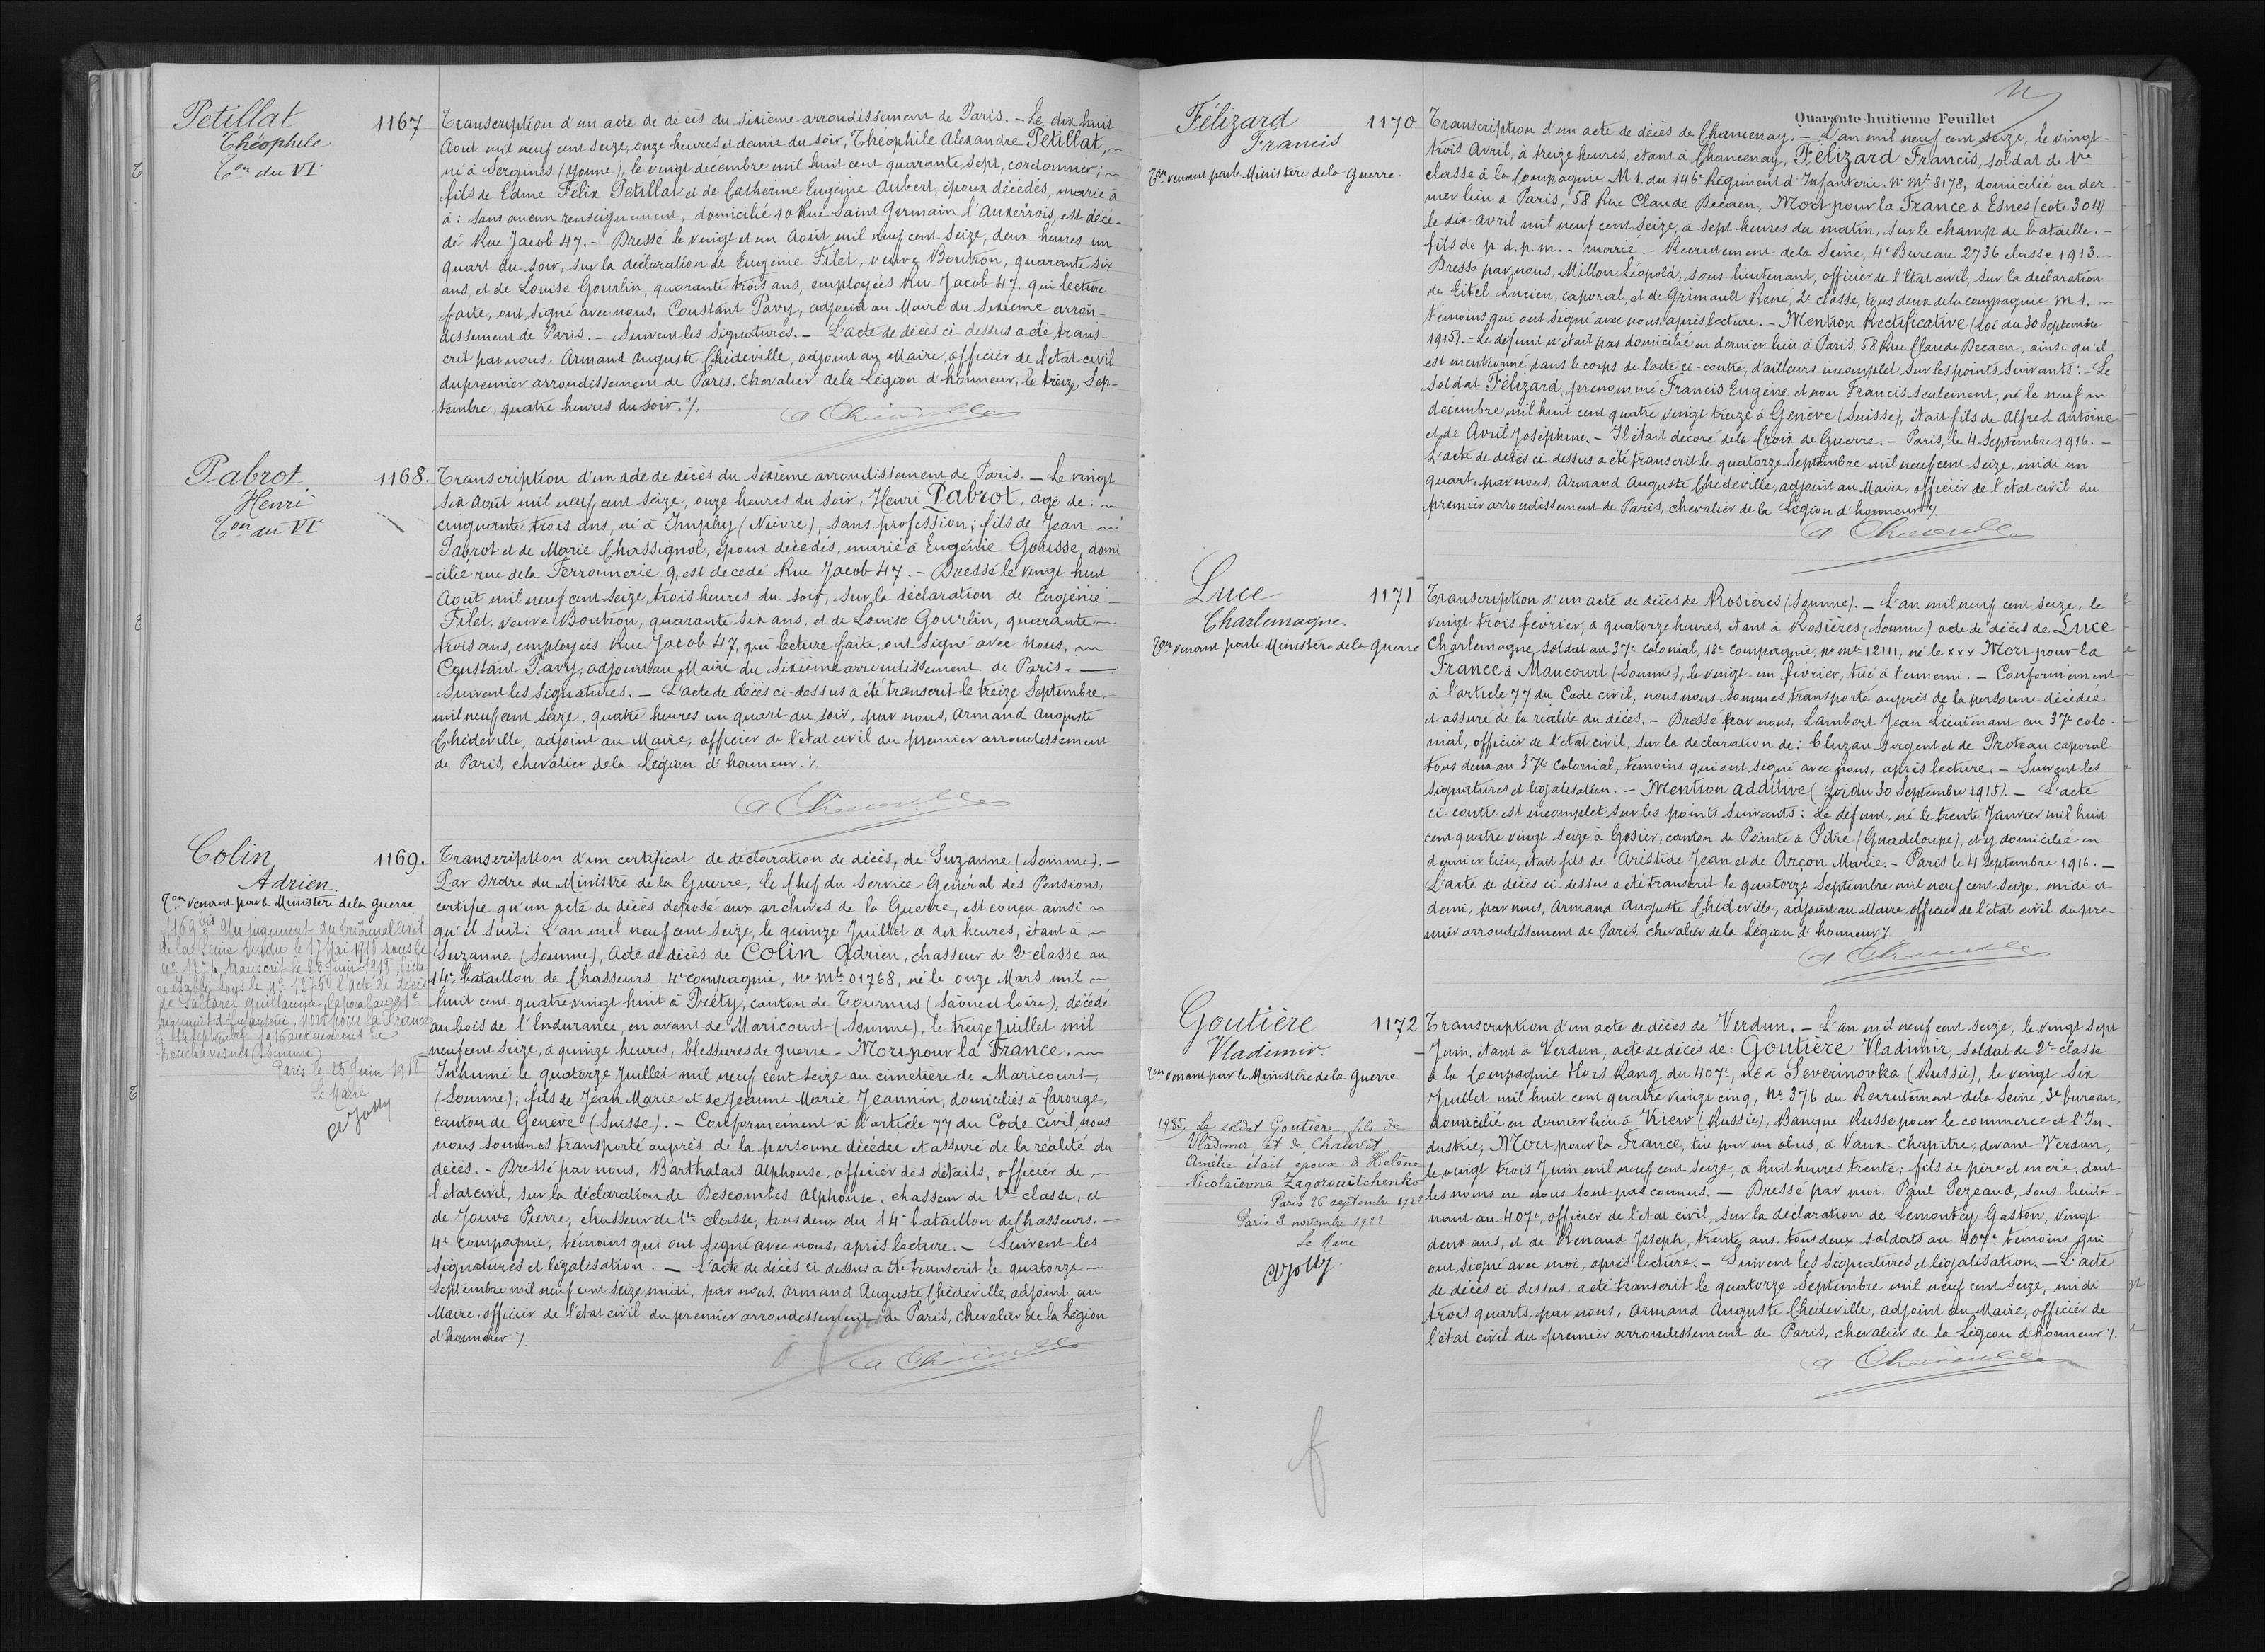 Petillat
Théophile
Ton du VIe
1167
Transcription d'un acte de décès du sixième arrondissement de Paris. - Le dix huit
Août mil neuf cent seize, onze heures et demie du soir, Théophile Alexandre Petillat,
né à Sergines (Yonne), le vingt décembre mil huit cent quarante sept, cordonnier;
fils de Edme Félix Petillat et de Catherine Eugénie Aubert, époux décédés, marié à
à : sans aucun renseignement, domicilié 10 Rue Saint Germain l'Auxerrois, est décé-
dé Rue Jacob 47. - Dressé le vingt et un Août mil neuf cent seize, deux heures un
quart du soir, sur la déclaration de Eugénie Filet, veuve Boutron, quarante six
ans, et de Louise Gourlin, quarante trois ans, employées Rue Jacob 47. qui lecture
faite, ont signé avec nous, Constant Pavy, adjoint au Maire du sixième arron-
dissement de Paris. - Suivent les signatures. - L'acte de décès ci-dessus a été trans-
crit par nous, Armand Auguste Chédeville, adjoint au Maire, officier de l'état civil
du premier arrondissement de Paris, chevalier de la Légion d'honneur, le treize Sep-
tembre, quatre heures du soir. %.
A Chédeville
Pabrot
Henri
Ton du VIe
1168.
Transcription d'un acte de décès du sixième arrondissement de Paris. - Le vingt
six Août mil neuf cent seize, onze heures du soir, Henri Pabrot, âgé de :
cinquante trois ans, né à Imphy (Nièvre), sans profession; fils de Jean
Pabrot et de Marie Chassignol, époux décédés, marié à Eugénie Gousse, domi
-cilié rue de la Ferronnerie 9, est décédé Rue Jacob 47. - Dressé le vingt huit
Août mil neuf cent seize, trois heures du soir, sur la déclaration de Eugénie
Filet, veuve Boutron, quarante six ans, et de Louise Gourlin, quarante
trois ans, employées Rue Jacob 47, qui lecture faite, ont signé avec Nous,
Constant Pavy, adjoint au Maire du sixième arrondissement de Paris. -
Suivent les signatures. - L'acte de décès ci-dessus a été transcrit le treize Septembre
mil neuf cent seize, quatre heures un quart du soir, par nous, Armand Auguste
Chédeville, adjoint au Maire, officier de l'état civil du premier arrondissement
de Paris, chevalier de la Légion d'honneur. %.
A Chédeville
Colin
Adrien.
Ton venant par le Ministère de la Guerre
1169.
1169 bis Un jugement du tribunal civil
de la Seine rendu le 17 Mai 1918 sous le
transcrit le 25 Juin 1918
sous le No 1275 l'acte de décès
de Guillaume, caporal au
régiment d'Infanterie, Mort pour la France
Septembre 1916 aux environs de
Bouchavesnes (Somme)
Paris le 25 Juin 1918
Le Maire
A Jolly
Transcription d'un certificat de déclaration de décès, de Suzanne (Somme). -
Par ordre du Ministre de la Guerre, le Chef du Service Général des Pensions,
certifie qu'un acte de décès déposé aux archives de la Guerre, est conçu ainsi
qu'il suit : L'an mil neuf cent seize, le quinze Juillet à dix heures, étant à
Suzanne (Somme), Acte de décès de Colin Adrien, chasseur de 2e classe au
14e bataillon de Chasseurs, 4e compagnie, No Mle 01768, né le onze Mars mil
huit cent quatre vingt huit à Préty, canton de Tournus (Saône et Loire), décédé
au bois de l'Endurance, en avant de Maricourt (Somme), le treize Juillet mil
neuf cent seize, à quinze heures, blessures de guerre - Mort pour la France.
Inhumé le quatorze Juillet mil neuf cent seize au cimetière de Maricourt,
(Somme); fils de Jean Marie et de Jeanne Marie Jeannin, domiciliés à Carouge,
canton de Genève (Suisse). - Conformément à l'article 77 du Code Civil, nous
nous sommes transporté auprès de la personne décédée et assuré de la réalité du
décès. - Dressé par nous, Barthalais Alphonse, officier des détails, officier de
l'état civil, sur la déclaration de Descombes Alphonse, chasseur de 1re classe, et
de Jouve Pierre, chasseur de 1re classe, tous deux du 14e bataillon de Chasseurs,
4e compagnie, témoins qui ont signé avec nous, après lecture. - Suivent les
signatures et légalisation. - L'acte de décès ci-dessus a été transcrit le quatorze
Septembre mil neuf cent seize, midi, par nous, Armand Auguste Chédeville, adjoint au
Maire, officier de l'état civil du premier arrondissement de Paris, chevalier de la Légion
d'honneur %.
A Chédeville
Quarante-huitième Feuillet
Félizard
Francis
Ton venant par le Ministère de la Guerre.
1170
Transcription d'un acte de décès de Chancenay. - L'an mil neuf cent seize, le vingt-
trois Avril, à treize heures, étant à Chancenay, Félizard Francis, soldat de 1re
classe à la Compagnie M 1. du 146e Régiment d'Infanterie, No Mle 8178, domicilié en der
nier lieu à Paris, 58 Rue Claude Decaen, Mort pour la France à Esnes (cote 304)
le dix Avril mil neuf cent seize, à sept heures du matin, sur le champ de bataille. -
fils de p. d. p. m. - marié. - Recrutement de la Seine, 4e Bureau 2736 classe 1913. -
Dressé par nous, Millon Léopold, sous-lieutenant, officier de l'Etat civil, sur la déclaration
de Eitel Lucien, caporal, et de Grimault René, 2e classe, tous deux de la compagnie M. 1,
témoins qui ont signé avec nous après lecture. - Mention Rectificative (Loi du 30 Septembre
1915). - Le défunt n'était pas domicilié en dernier lieu à Paris, 58 Rue Claude Decaen, ainsi qu'il
est mentionné dans le corps de l'acte ci-contre, d'ailleurs incomplet sur les points suivants : - Le
soldat Félizard, prénommé Francis Eugène et non Francis seulement, né le neuf
décembre mil huit cent quatre vingt treize à Genève (Suisse), était fils de Alfred Antoine
et de Avril Joséphine. - Il était décoré de la Croix de Guerre. - Paris, le 4 Septembre 1916. -
L'acte de décès ci-dessus a été transcrit le quatorze Septembre mil neuf cent seize, midi un
quart, par nous, Armand Auguste Chédeville, adjoint au Maire, officier de l'état civil du
premier arrondissement de Paris, chevalier de la Légion d'honneur %.
A Chédeville
Luce
Charlemagne.
Ton venant par le Ministère de la Guerre
1171
Transcription d'un acte de décès de Rosières (Somme). - L'an mil neuf cent seize, le
vingt trois février, à quatorze heures, étant à Rosières (Somme) acte de décès de Luce
Charlemagne, soldat au 37e Colonial, 18e Compagnie, No Mle 12111, né le xxx Mort pour la
France à Maucourt (Somme), le vingt un février, tué à l'ennemi. - Conformément
à l'article 77 du Code civil, nous nous sommes transporté auprès de la personne décédée
et assuré de la réalité du décès. - Dressé par nous, Lambert Jean Lieutenant au 37e colo-
nial, officier de l'état civil, sur la déclaration de : Cluzau sergent et de Proteau caporal
tous deux au 37e Colonial, témoins qui ont signé avec nous, après lecture. - Suivent les
signatures et légalisation. - Mention additive (Loi du 30 Septembre 1915). - L'acte
ci-contre est incomplet sur les points suivants : Le défunt, né le trente Janvier mil huit
cent quatre vingt seize à Gosier, canton de Pointe à Pitre (Guadeloupe), et y domicilié en
dernier lieu, était fils de Aristide Jean et de Arçon Marie. - Paris le 4 Septembre 1916. -
L'acte de décès ci-dessus a été transcrit le quatorze Septembre mil neuf cent seize, midi et
demi, par nous, Armand Auguste Chédeville, adjoint au Maire, officier de l'état civil du pre-
mier arrondissement de Paris, chevalier de la Légion d'honneur %
A Chédeville
Goutière
Vladimir.
Ton venant par le Ministère de la Guerre
1172
1985, Le soldat Goutière fils de
Vladimir et de Chauvet
Amélie était époux de Hélène
Nicolaïevna Zagorouïtchenko
Paris 26 septembre 1922
Paris 3 novembre 1922
Le Maire
A Jolly
Transcription d'un acte de décès de Verdun. - L'an mil neuf cent seize, le vingt sept
Juin, étant à Verdun, acte de décès de : Goutière Vladimir, soldat de 2e classe
à la Compagnie Hors Rang du 407e, né à Severinovka (Russie), le vingt six
Juillet mil huit cent quatre vingt cinq, No 376 du Recrutement de la Seine, 3e bureau,
domicilié en dernier lieu à Kiew (Russie), Banque Russe pour le commerce et l'In-
dustrie, Mort pour la France, tué par un obus, à Vaux-Chapitre, devant Verdun,
le vingt trois Juin mil neuf cent seize, à huit heures trente; fils de père et mère, dont
les noms ne nous sont pas connus. - Dressé par moi, Paul Pezeaud, sous-lieute-
nant au 407e, officier de l'état civil, sur la déclaration de Lemontey Gaston, vingt
deux ans, et de Renaud Joseph, trente ans, tous deux soldats au 407e témoins qui
ont signé avec moi, après lecture. - Suivent les signatures et légalisation. - L'acte
de décès ci-dessus, a été transcrit le quatorze Septembre mil neuf cent seize, midi
trois quarts, par nous, Armand Auguste Chédeville, adjoint au Maire, officier de
l'état civil du premier arrondissement de Paris, chevalier de la Légion d'honneur %.
A Chédeville